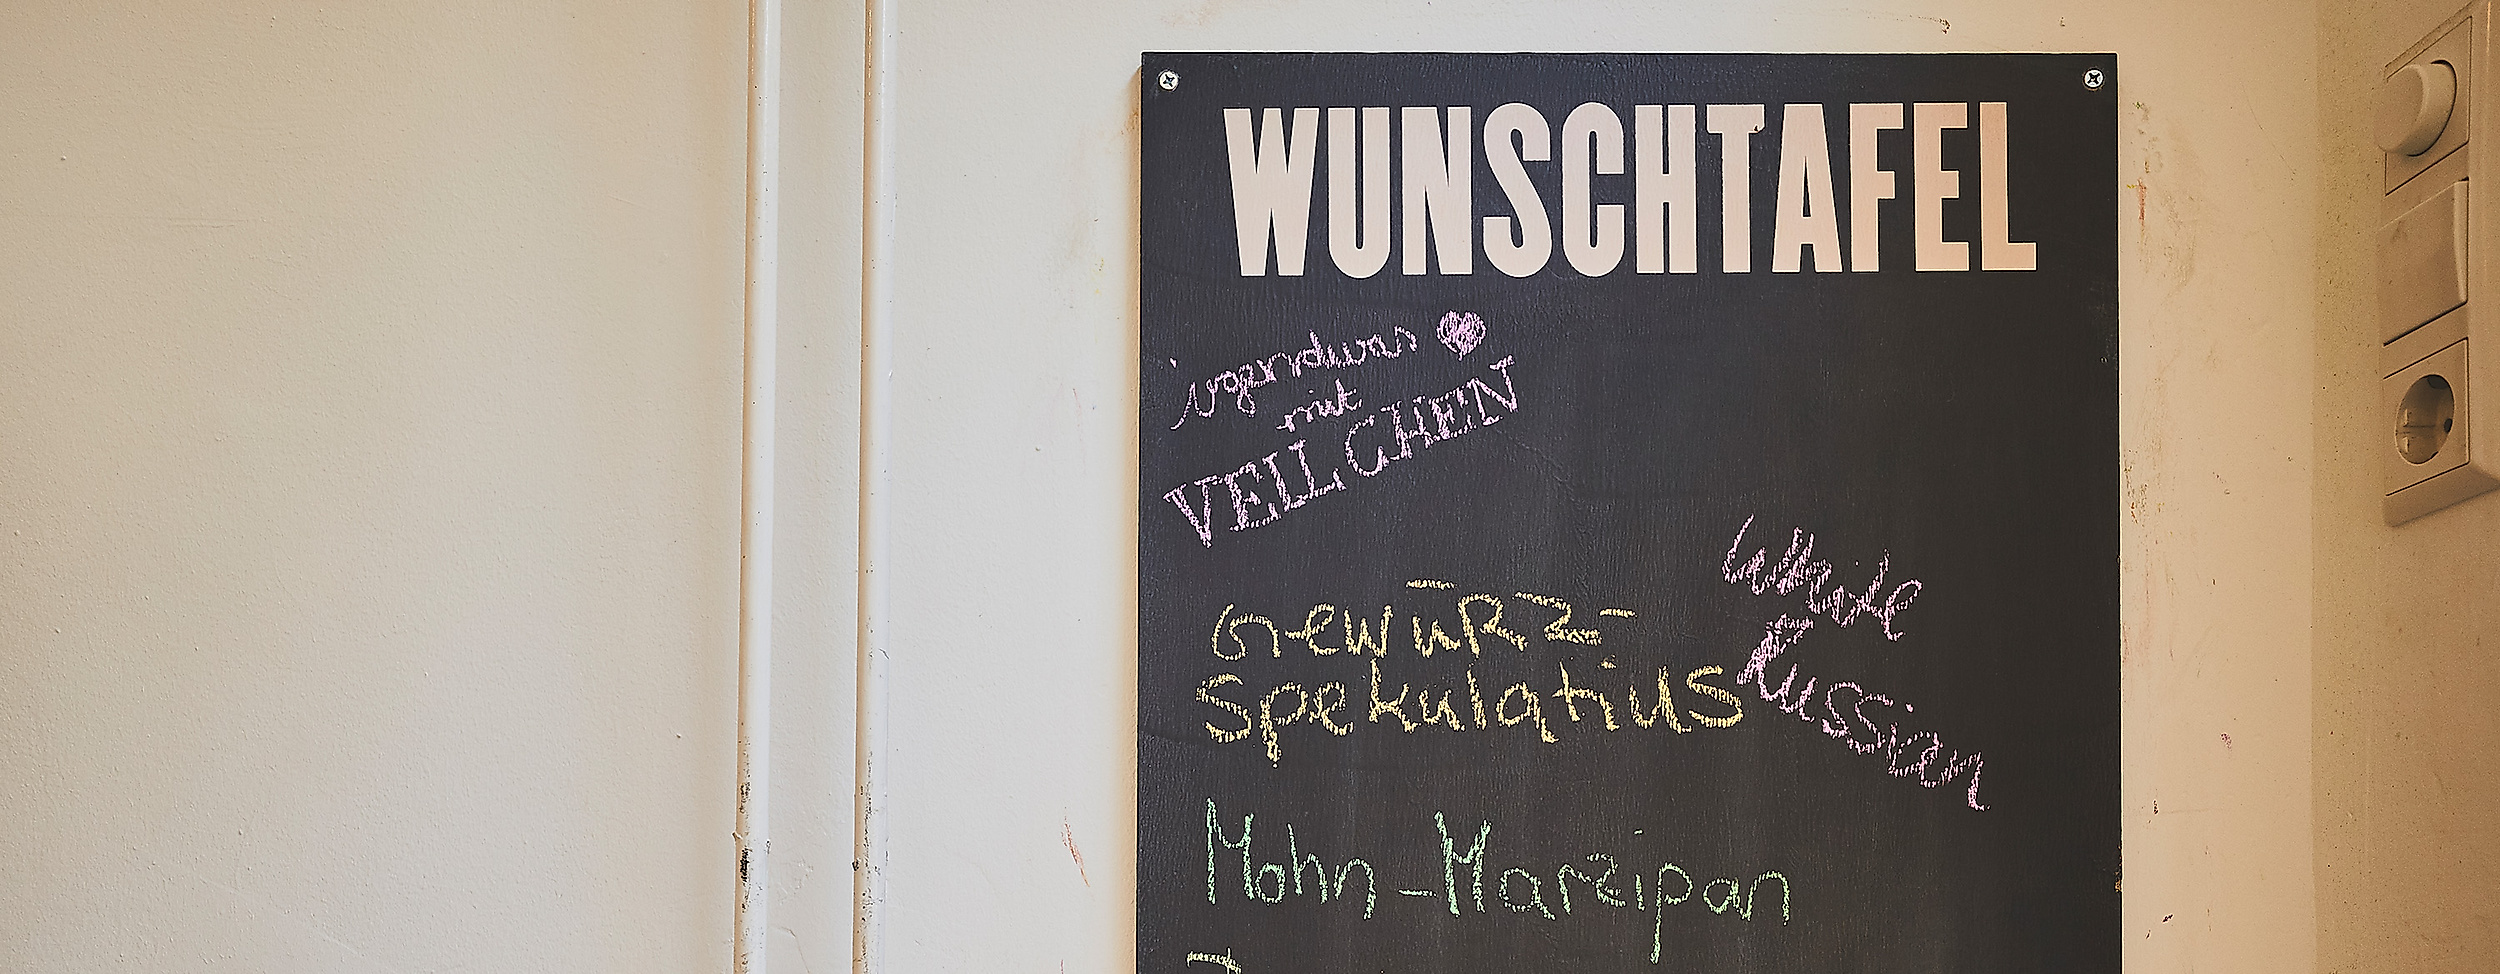 WUNSCHTAFEL
irgendwas
mit
VEILCHEN
Gewürz-
Spekulatius
White
Russian
Mohn-Marzipan